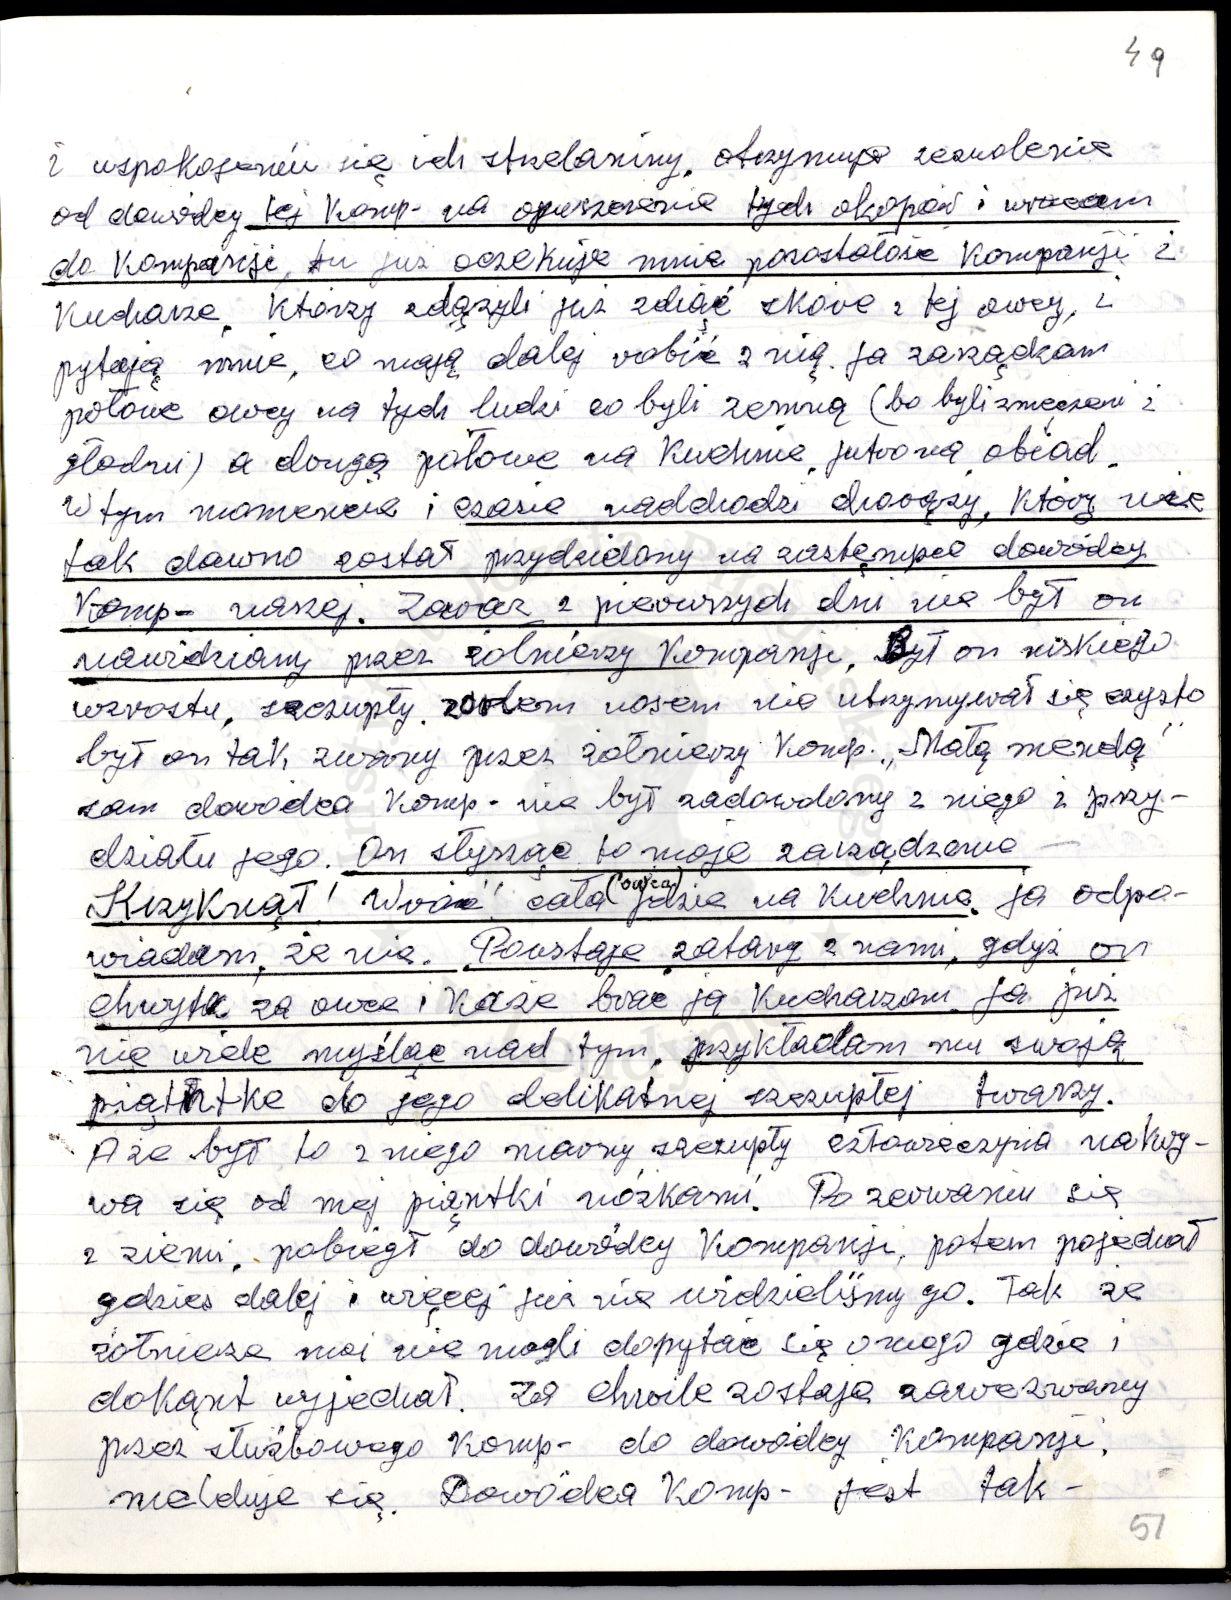 49
i uspokojeniu się ich strzelaniny, otrzymuję zezwolenie
od dowódcy tej Komp- na opuszczenie tych okopów i wracam
do Kompanji, tu już oczekuje mnie pozostałość Kompanji i
Kucharze, Którzy zdążyli już zdiąć skóre z tej owcy, i
pytają mnie, co mają dalej robić z nią. ja zarządzam
połowe owcy na tych ludzi co byli zemną (bo byli zmęczeni i
głodni) a drugą połowe na Kuchnie, jutro na obiad.
W tym momencie i czasie nadchodzi chorąży, Który nie
tak dawno został przydzielony na zastempce dowódcy
Komp- naszej. Zaraz z pierwszych dni nie był on
nawidziany przez żołnierzy Kompanji. Był on niskiego
wzrostu, szczupły. nosem nie utrzymywał się czysto
był on tak zwany przez żołnierzy Komp. „Małą mendą"
sam dowódca Komp- nie był zadowolony z niego i przy-
działu jego. On słysząc to moje zarządzenie —
Krzyknął! Wróć! cała (owca) idzie na Kuchnię. ja odpo-
wiadam, że nie. Powstaje zatarg z nami, gdyż on
chwyta za owce i Każe brać ją Kucharzom ja już
nie wiele myśląc nad tym, przykładam mu swoją
piąntke do jego delikatnej szczupłej twarzy.
A że był to z niego marny szczupły człowieczyna nakry-
wa się od mej piąntki nóżkami. Po zerwaniu się
z ziemi, pobiegł do dowódcy Kompanji, potem pojechał
gdzieś dalej i więcej już nie widzieliśmy go. Tak że
żołnierze moi nie mogli dopytać się o niego gdzie i
dokąnt wyjechał. Za chwile zostaję zawezwany
przez służbowego Komp- do dowódcy Kompanji,
melduje się. Dowódca Komp- jest tak-
51